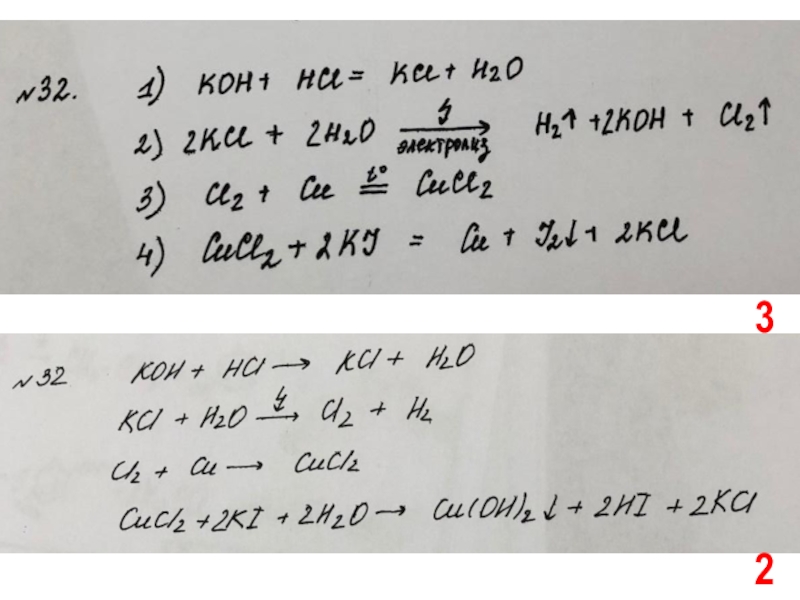 №32. 1) KOH + HCl = KCl + H2O
2) 2KCl + 2H2O электролиз→ H2↑ + 2KOH + Cl2↑
3) Cl2 + Cu t°= CuCl2
4) CuCl2 + 2KJ = Cu + J2↓ + 2KCl
3
№32 KOH + HCl → KCl + H2O
KCl + H2O → Cl2 + H2
Cl2 + Cu → CuCl2
CuCl2 + 2KI + 2H2O → Cu(OH)2↓ + 2HI + 2KCl
2